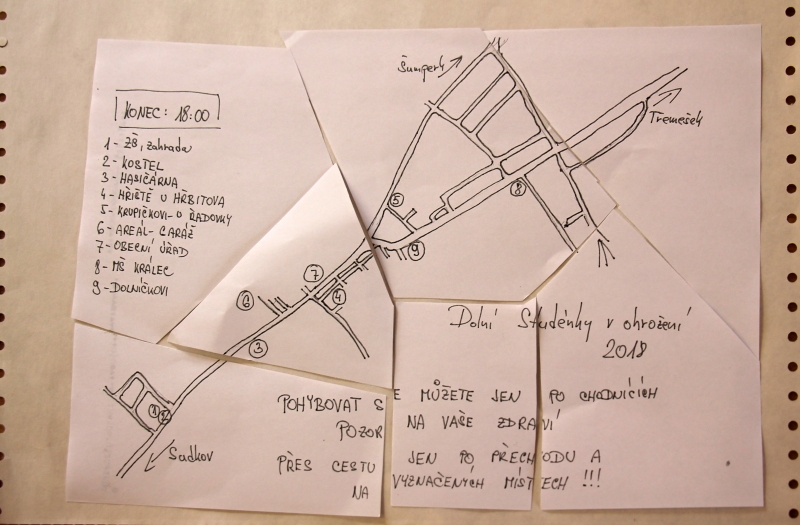 KONEC: 18:00
1 - ZŠ, zahrada
2 - KOSTEL
3 - HASIČÁRNA
4 - HŘIŠTĚ U HŘBITOVA
5 - KRUPIČKOVI - U ŘADOVKY
6 - AREÁL - GARÁŽ
7 - OBECNÍ ÚŘAD
8 - MŠ KRÁLEC
9 - DOLNÍČKOVI
Šumperk
Třemešek
5
8
9
7
4
6
3
1
2
Sudkov
Dolní Studénky v ohrožení
2018
POHYBOVAT SE MŮŽETE JEN PO CHODNÍCÍCH
POZOR NA VAŠE ZDRAVÍ
PŘES CESTU JEN PO PŘECHODU A
NA VYZNAČENÝCH MÍSTECH !!!